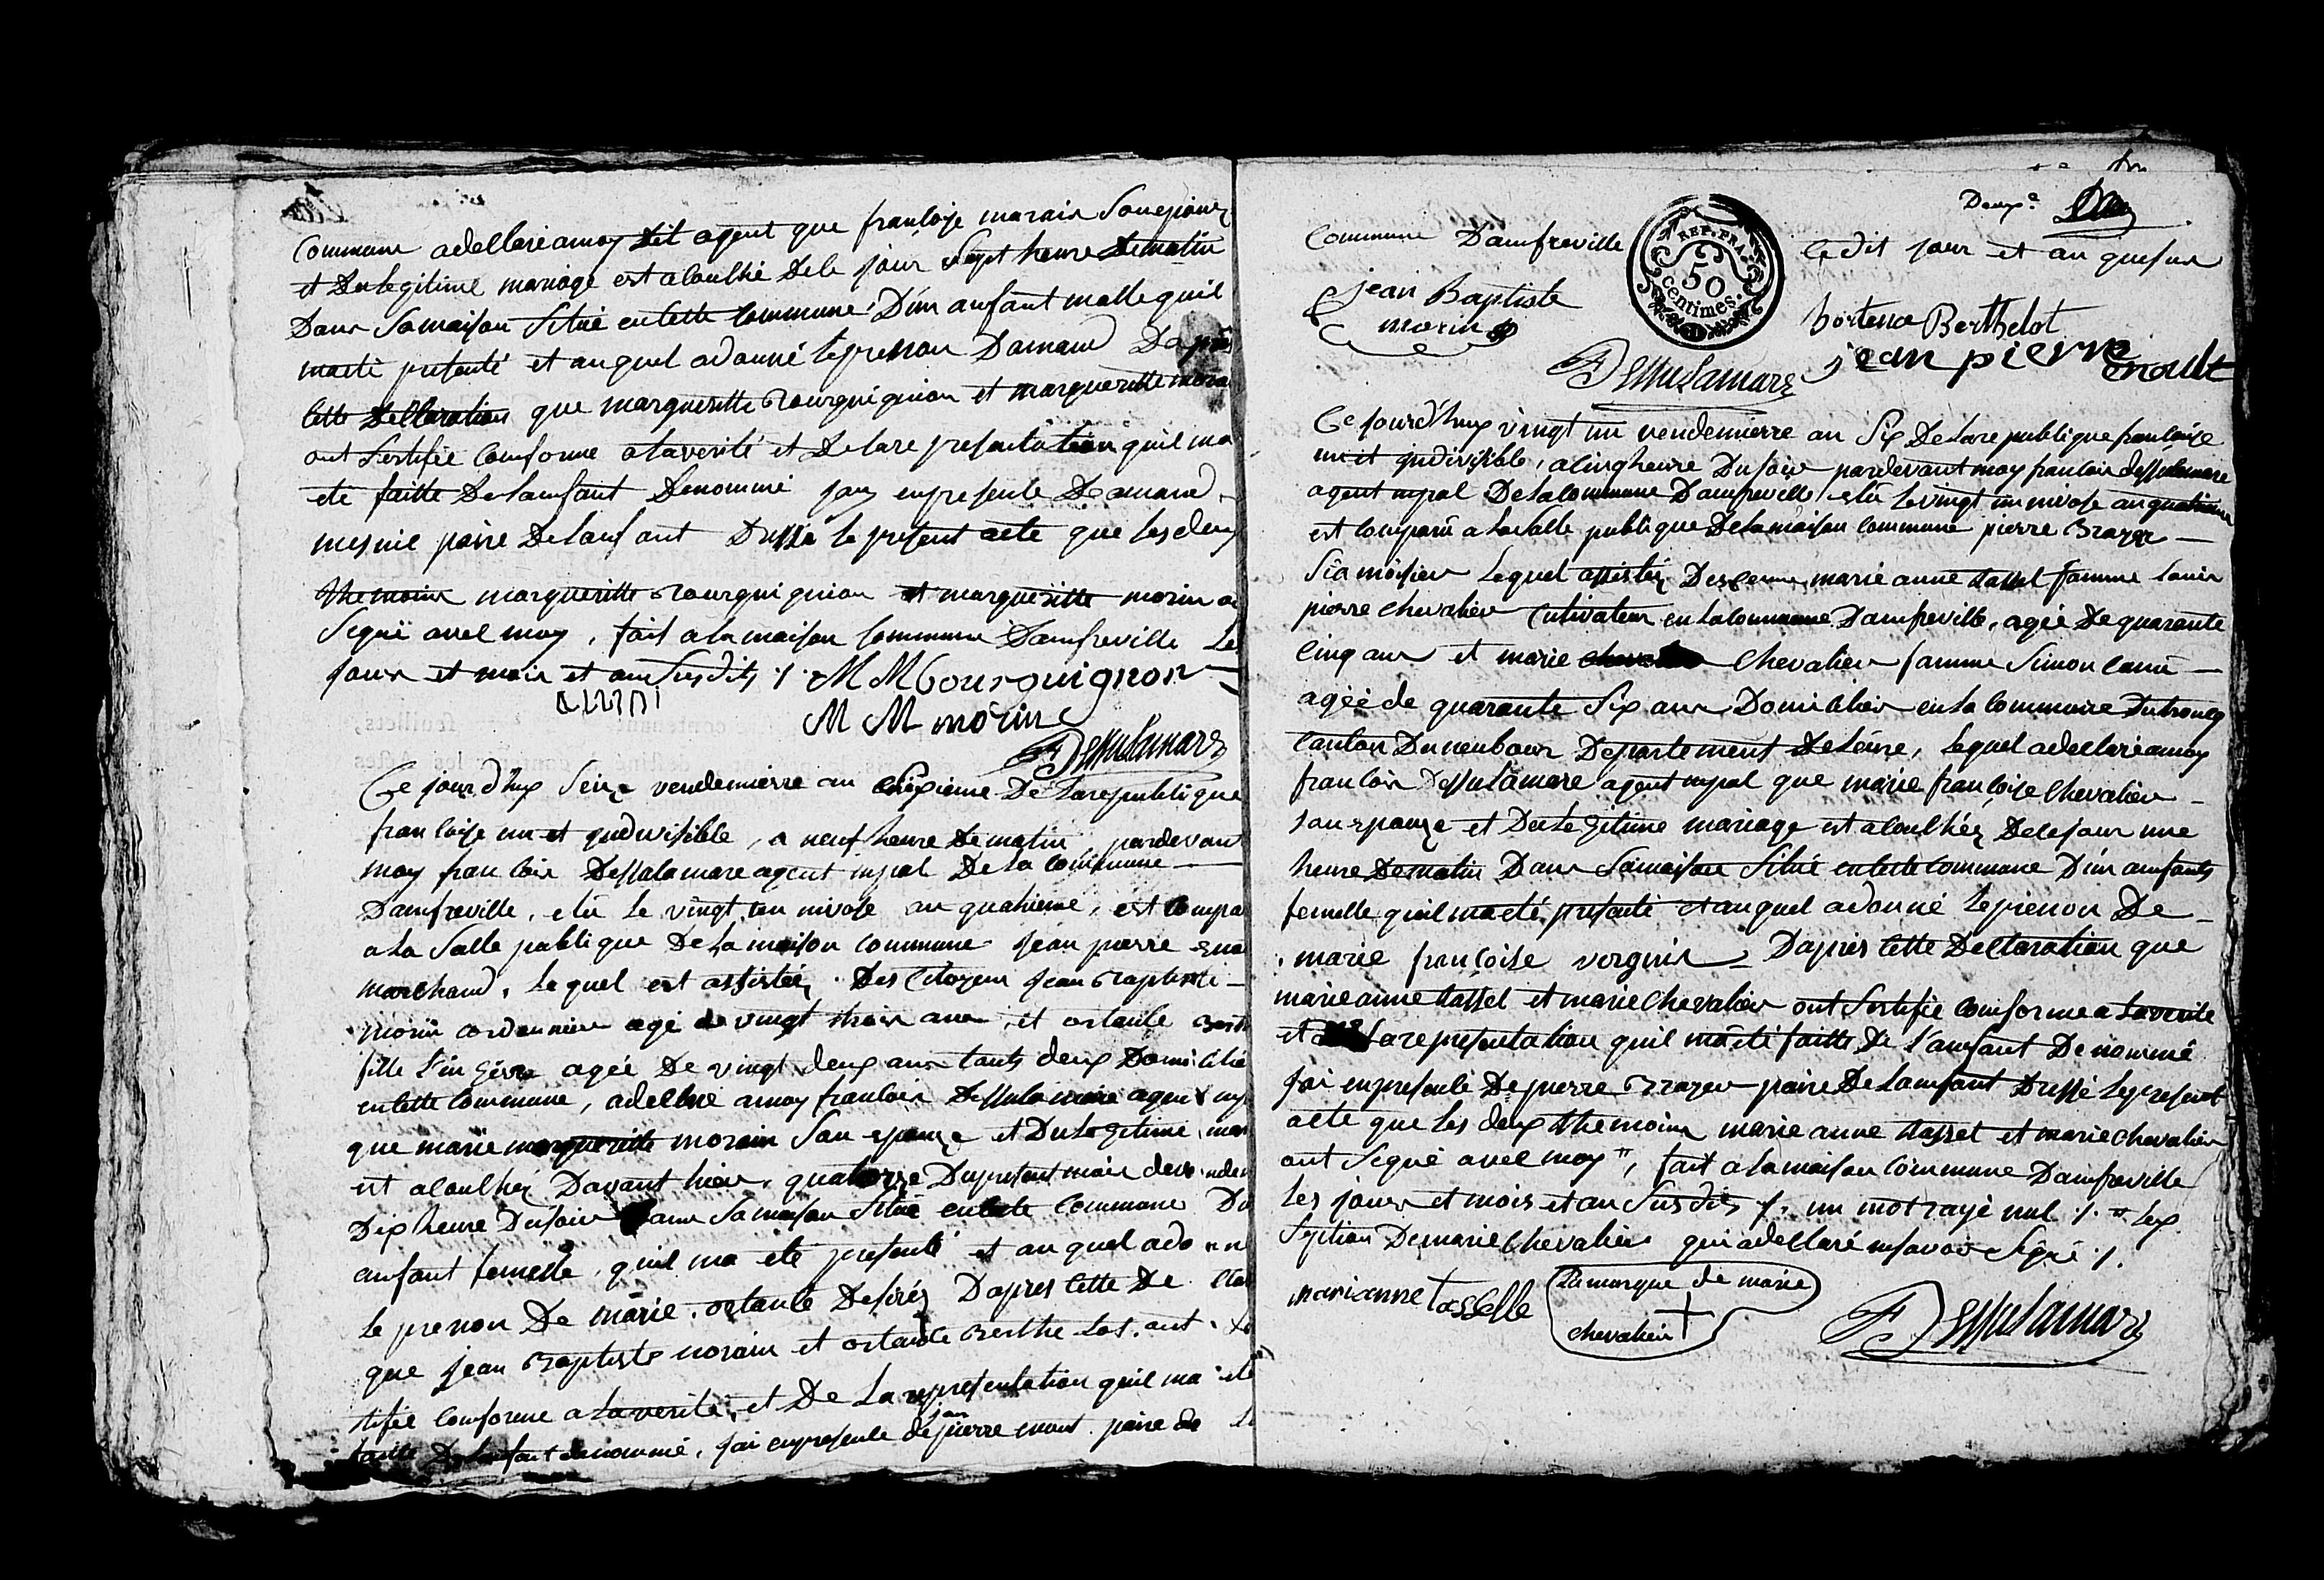 Commune adeclaré amoy dit agent que francoise marais Son epouze
et Du legitime mariage est acouchée De ce jour Sept heure Dematin
Dans Samaison Situé encette Commune D'un anfant malle quil
maété presenté et auquel adonné le prenon Damand Dapres
Cette Declaration que margueritte Bourguignion et margueritte morin
ont Sertifié Conforme alaverité et Delare presentation quil ma
eté faitte De lanfant Denommé jay enpresente De amand
mesnil paire Delanfant Dressé le present acte que les deux
themoins margueritte Bourguignion et margueritte morin on
Signé avec moy, fait ala maison Commune Damfreville Le
jours et mois et an Susdits ./. M M bourguignon
M M morin
F Dessulamare
Ce jourd'huy Seize vendemierre an Sixieme De Larepublique
francoise un et indivisible, a neuf heure Dematin, pardevant
moy francois Dessulamare agent mpal De la Commune
Damfreville, elu Le vingt un nivose an quatrieme, est Compar
ala Salle publique De la maison commune jean pierre enou
marchand, Lequel est assistée Des Citoyens jean Baptiste
morin cordonnier agé de vingt trois ans, et ortance Berth
fille agée De vingt deux ans touts deux Domicilié
encette Commune, adeclaré amoy francois Dessulamare agent mp
que marie margueritte morin Son epouze et Du Legitime mar
est acouchée Davant hier quatorze Dupresent mois de vendem
Dix heure Dusoir Dans Samaison Situé encette Commune Du
anfant femelle quil ma eté presenté et auquel adonné
le prenon De marie ortance Desirée Dapres Cette De clar
que jean Baptiste morin et ortance Berthelot ont Se
rtifié Conforme alaverité et De La representation quil ma eté
faitte De Lanfant denommé, jai enpresente de jean pierre enout paire de L
Deuxe
Commune Damfreville
REP. FRA.
50
centimes.
Cedit jour et an quesus
jean Baptiste
morin
hortence Berthelot
jean pierre
enoult
F Dessulamare
Ce jourd'huy vingt un vendemierre an Six De Lare publique francoise
un et indivisible, acinq heure Dusoir pardevant moy francois dessulamare
agent mpal De la Commune Damfreville elu Le vingt un nivose an quatrieme
est Comparû a La Salle publique De la maison Commune pierre Brazer
lequel assistée Des marie anne tassel famme Louis
pierre Chevalier Cultivateur en la Commune Damfreville, agée De quarante
cinq ans et marie Chevalier famme Simon
agée de quarante Six ans Domiciliée en la Commune Dutroncq
Canton Duneubour Departement De Leure, Lequel adeclaré amoy
francois Dessulamare agent mpal que marie francoise Chevalier
Son epouze et Du Legitime mariage est acouchée De cejour une
heure Dematin Dans Samaison Situé encette commune D'un anfants
femelle quil maeté presenté et auquel adonné Le prenon De
marie françoise vergine Dapres Cette Declaration que
marieanne tassel et marie Chevalier ont Sertifié Conforme a Laverité
et De Lare presentation quil maeté faitte De L'anfant Denommé
jai enpresente De pierre Brazer paire De Lanfant Dressé Le present
acte que Les deux themoins marie anne tassel et marie chevalier
ont Signé avec moy ", fait a La maison Commune Damfreville
Les jours et mois et an Susdits ./. un mot rayé nul ./. " Lex
seption De marie Chevalier qui adeclaré nsavoir Signé ./.
marianne tasselle
La marque de marie
chevalier
F Dessulamare